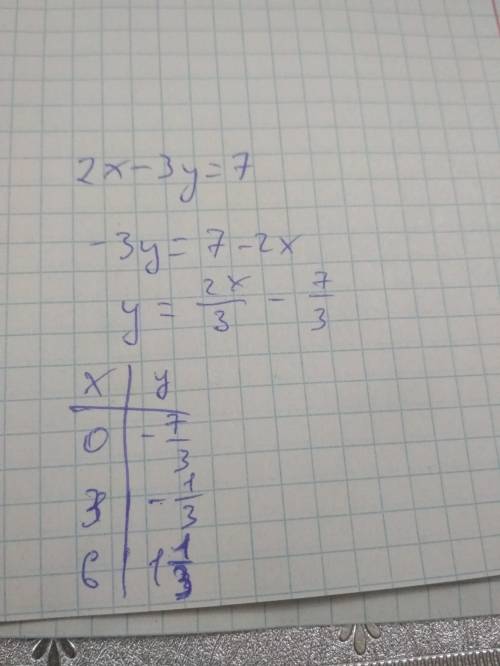 2x - 3y = 7
-3y = 7 - 2x
y = 2x/3 - 7/3
x | y
0 | -7/3
3 | -1/3
6 | 1 1/3